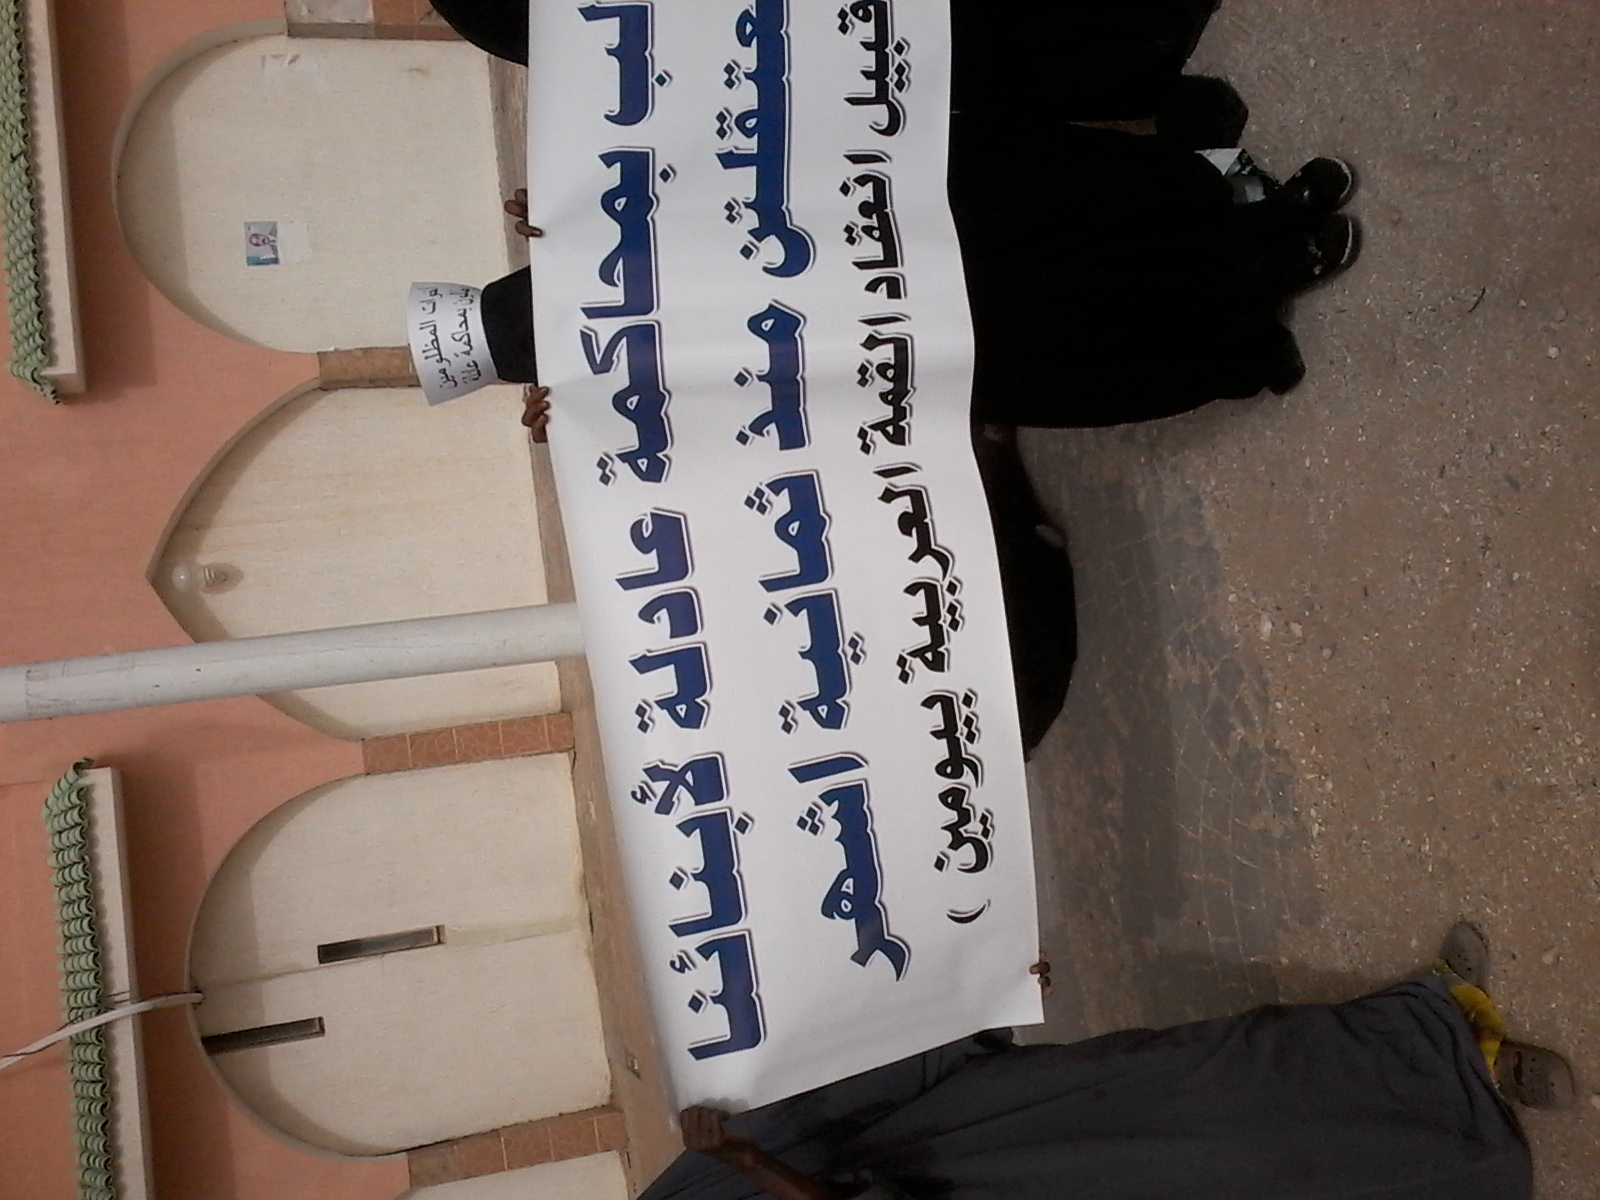 لب بمحاكمة عادلة لأبنائنا
عتقلين منذ ثمانية اشهر
قبيل انعقاد القمة العربية بيومين )
المظلومين
بمحاكمة